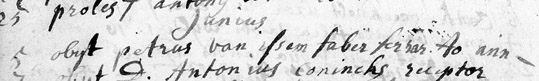 25 proles antony
Junius
5 obyt petrus van issem faber ferrar. To ann
7 obyt D. Antonius coninchs receptor